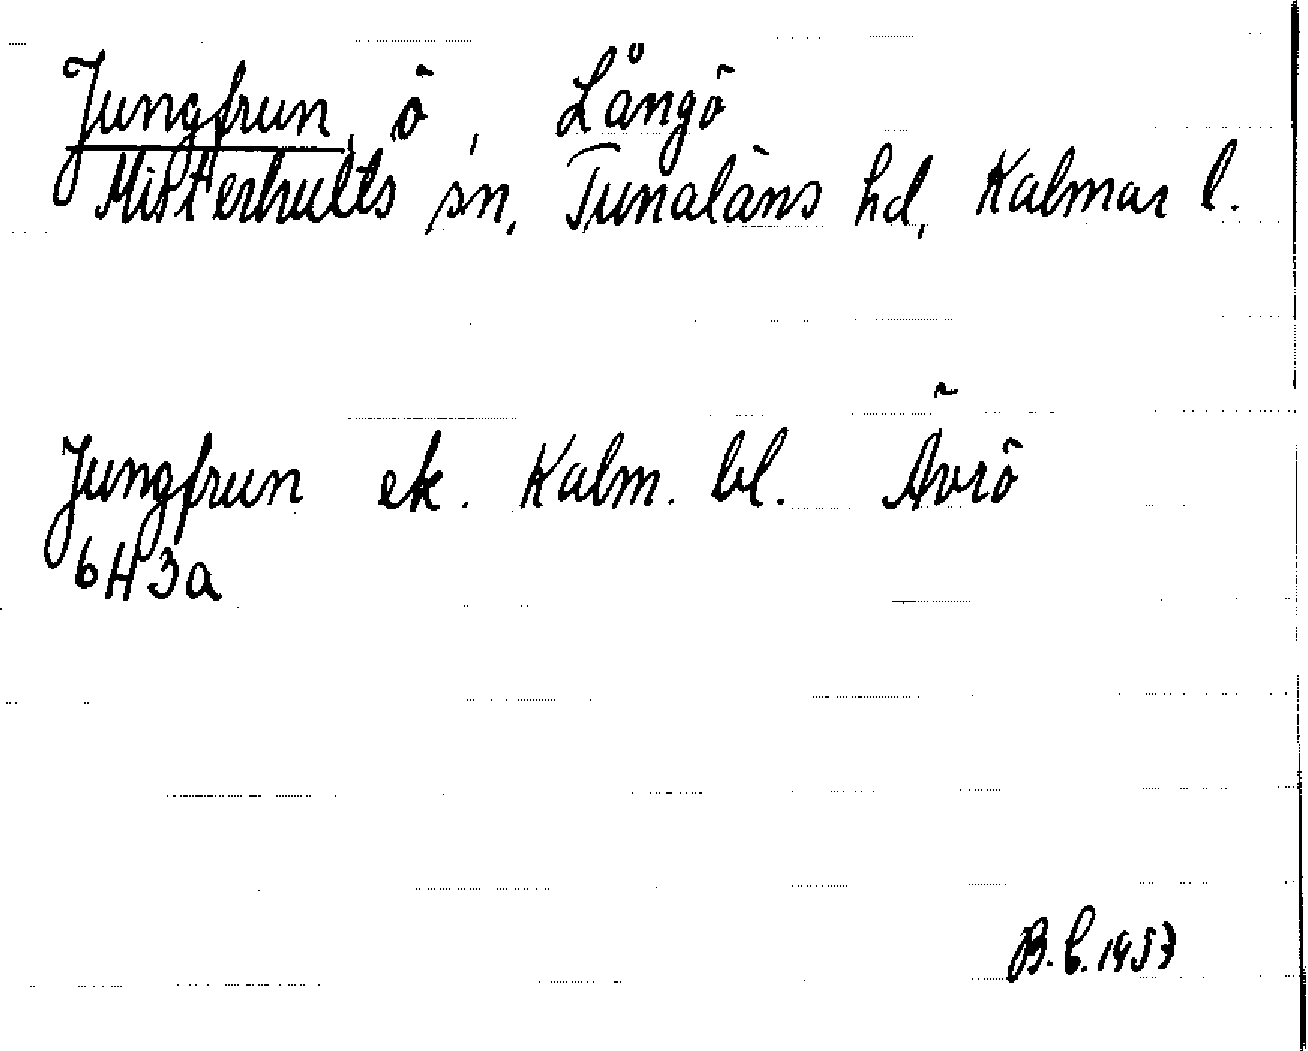 Jungfrun, ö, Långö
Misterhults sn, Tunaläns hd, Kalmar l.
Jungfrun ek. Kalm. bl. Ävrö
6H3a
B.E. 1957